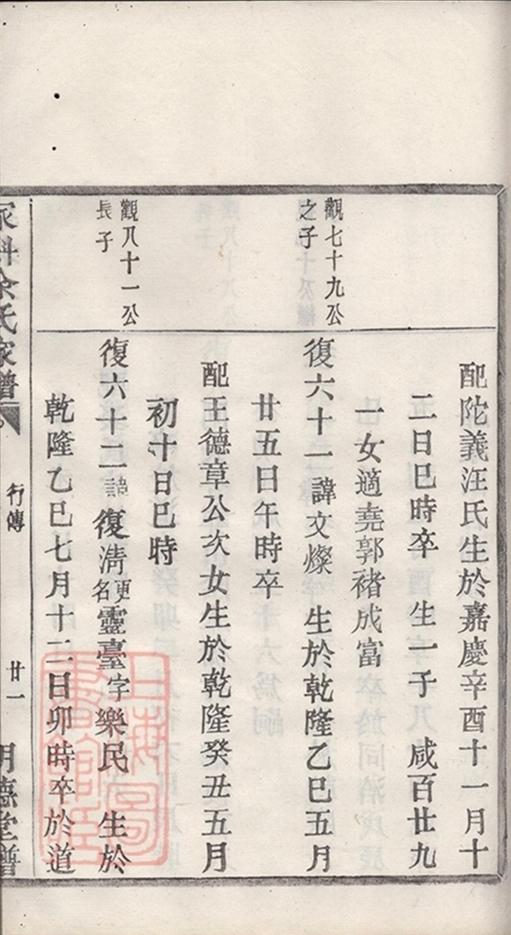 配陀義汪氏生於嘉慶辛酉十一月十
二日巳時卒　生一子　咸百廿九
一女適堯郭褚成富
觀七十九公
之子
復六十一諱文燦　生於乾隆乙巳五月
廿五日午時卒
配王德章公次女生於乾隆癸丑五月
初十日巳時
觀八十一公
長子
復六十二諱復清更名靈臺字樂民　生於
乾隆乙巳七月十二日卯時卒於道
余氏家譜
行傳
廿一
明德堂譜